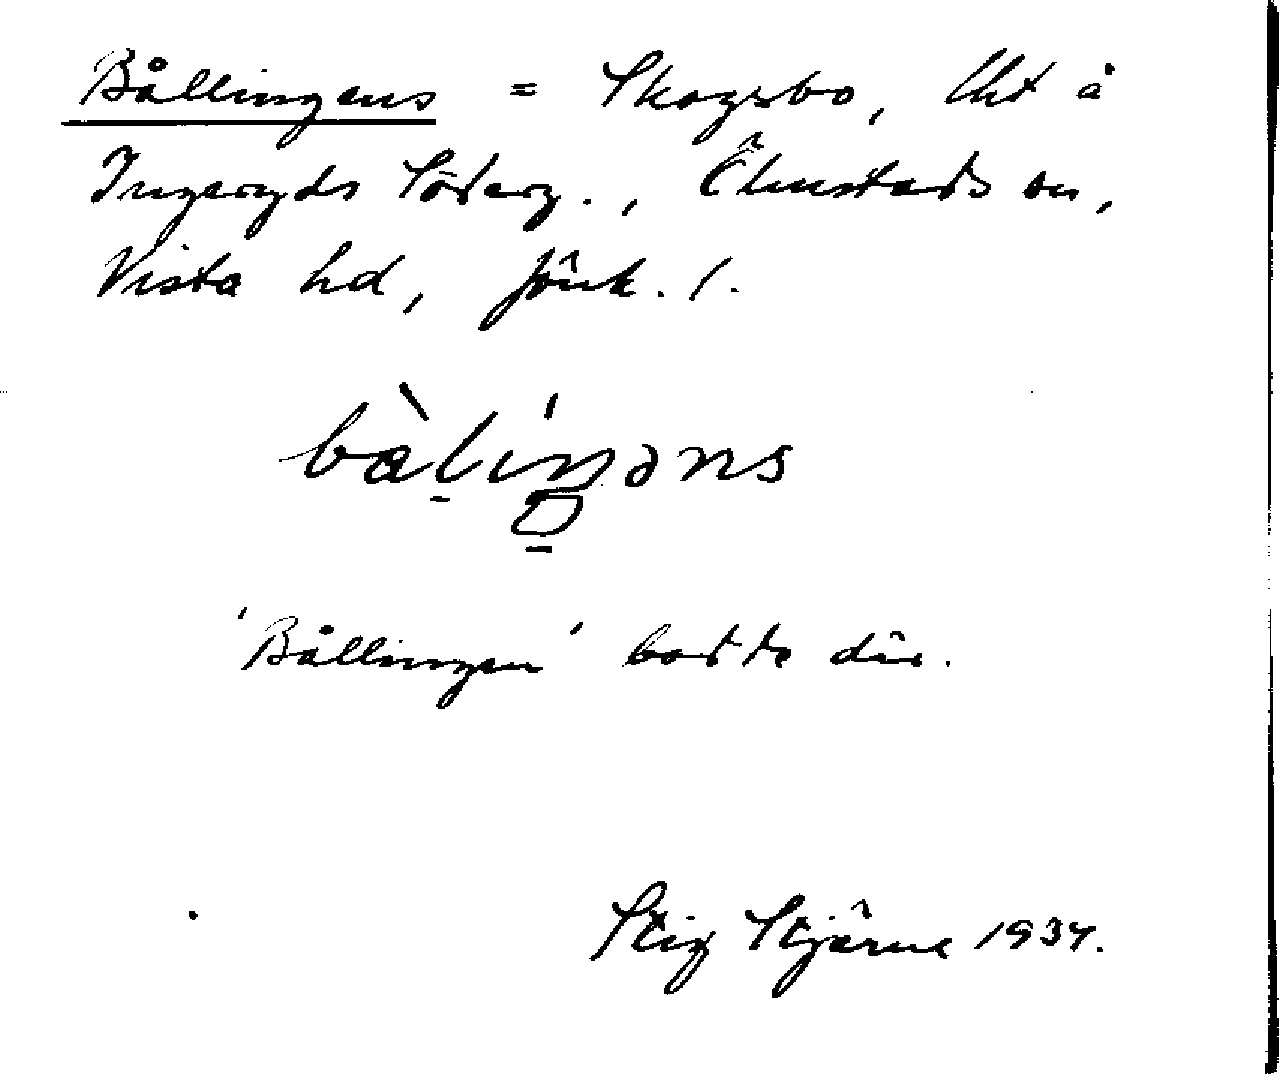 Bållingens = Skogsbo, lht å
Ingeryds Söderg., Ölmstads sn,
Vista hd, Jönk. l.
bàliŋəns
'Bållingen' bodde där.
Stig Stjärne 1937.